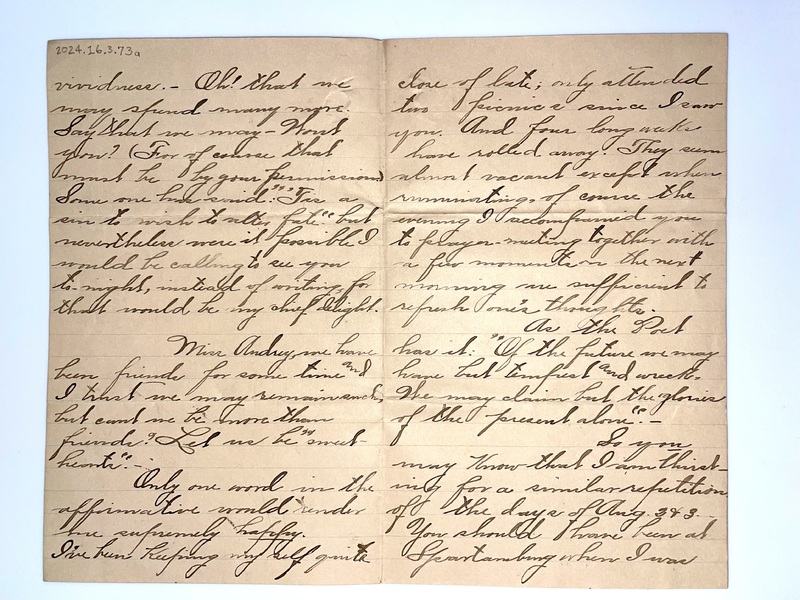 2024.16.3.73a
vividness. - Oh! that we
may spend many more.
Say that we may - Wont
you? (For of course that
must be by your permission)
Some one has said: "'Tis a
sin to wish to alter fate." but
nevertheless were it possible I
would be calling to see you
to-night, instead of writing, for
that would be my chief delight.
Miss Audrey, we have
been friends for some time and
I trust we may remain such,
but cant we be more than
friends? Let us be "sweet-
hearts". -
Only one word in the
affirmative would render
me supremely happy.
I've been keeping my self quite
close of late; only attended
two picnics since I saw
you. And four long weeks
have rolled away. They seem
almost vacant except when
ruminating, of course the
evening I accompanied you
to prayer-meeting together with
a few moments on the next
morning are sufficient to
refresh one's thoughts.
As the Poet
has it: "Of the future we may
have but tempest and wreck.
We may claim but the glories
of the present alone". -
So you
may know that I am thirst-
ing for a similar repetition
of the days of Aug. 2 & 3.
You should have been at
Spartanburg when I was